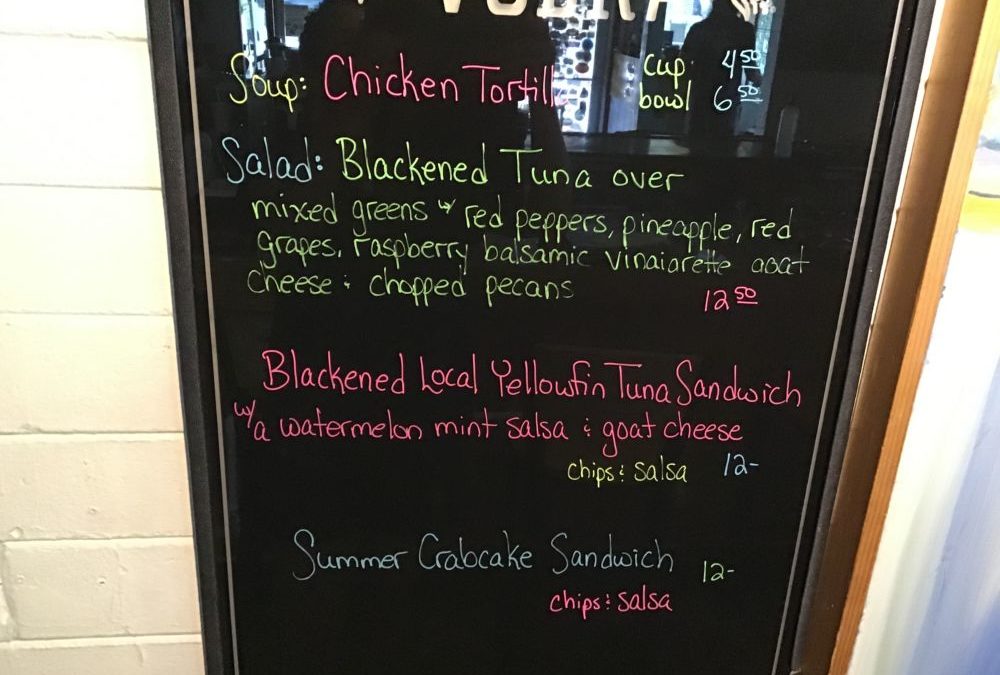 VODKA
Soup: Chicken Tortilla cup 4 50
bowl 6 50
Salad: Blackened Tuna over
mixed greens w/ red peppers, pineapple, red
grapes, raspberry balsamic vinaigrette goat
cheese & chopped pecans
12 50
Blackened Local Yellowfin Tuna Sandwich
w/ a watermelon mint salsa & goat cheese
chips & salsa 12-
Summer Crabcake Sandwich 12-
chips & salsa